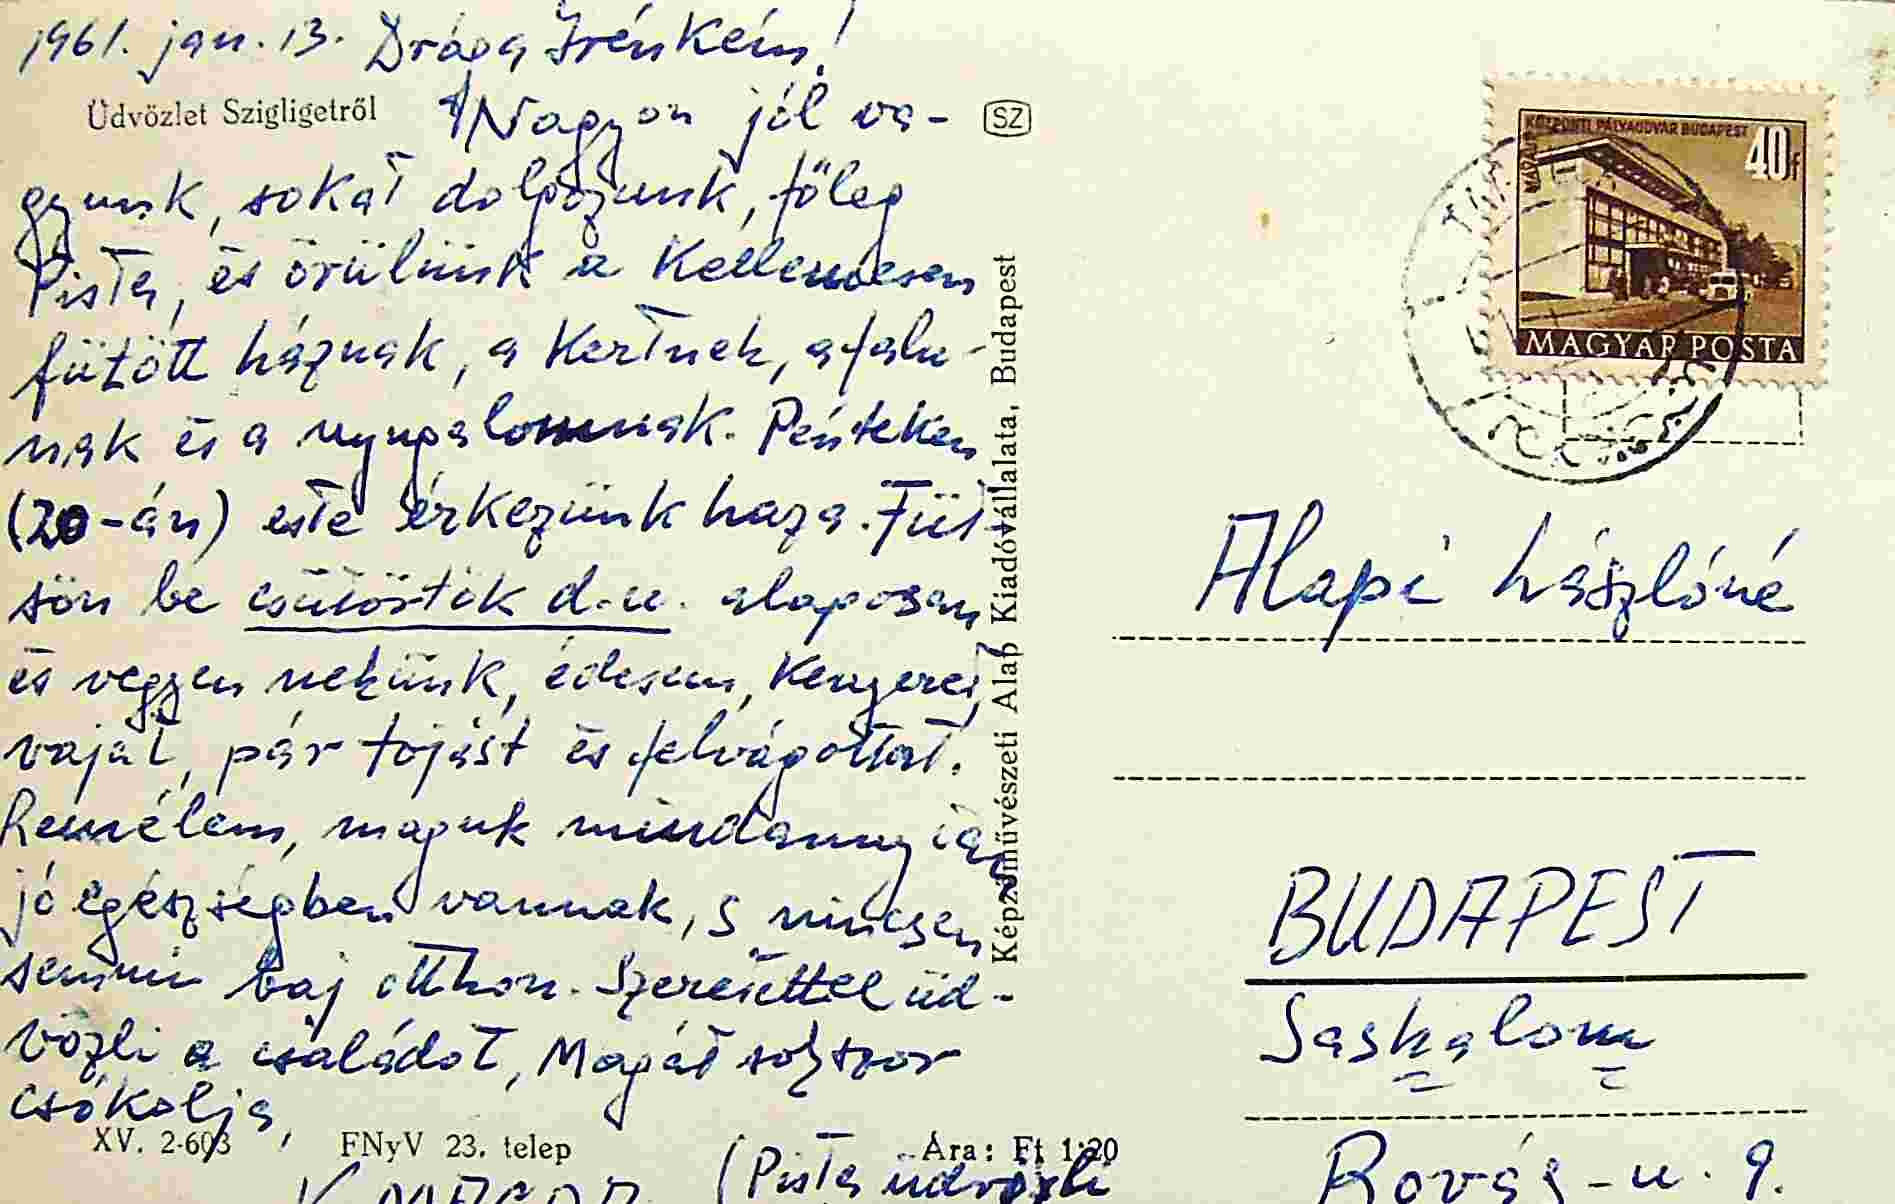 1961. jan. 13. Drága Irénkém!
Üdvözlet Szigligetről
Nagyon jól va-
gyunk, sokat dolgozunk, főleg
Pista, és örülünk a kellemesen
fűtött háznak, a kertnek, a falu-
nak és a nyugalomnak. Pénteken
(20-án) este érkezünk haza. Fűt-
sön be csütörtök d.u. alaposan
és vegyen nekünk, édesem, kenyeret,
vajat, pár tojást és felvágottat.
Remélem, maguk mindannyian
jó egészségben vannak, s nincsen
semmi baj otthon. Szeretettel üd-
vözli a családot, Magát sokszor
csókolja,
XV. 2-603
FNyV 23. telep
Ára: Ft 1·20
(Pista üdvözli
SZ
Képzőművészeti Alap Kiadóvállalata, Budapest
KÖZPONTI PÁLYAUDVAR BUDAPEST
40f
MAGYAR POSTA
Alapi Lászlóné
BUDAPEST
Sashalom
Rovás-u. 9.